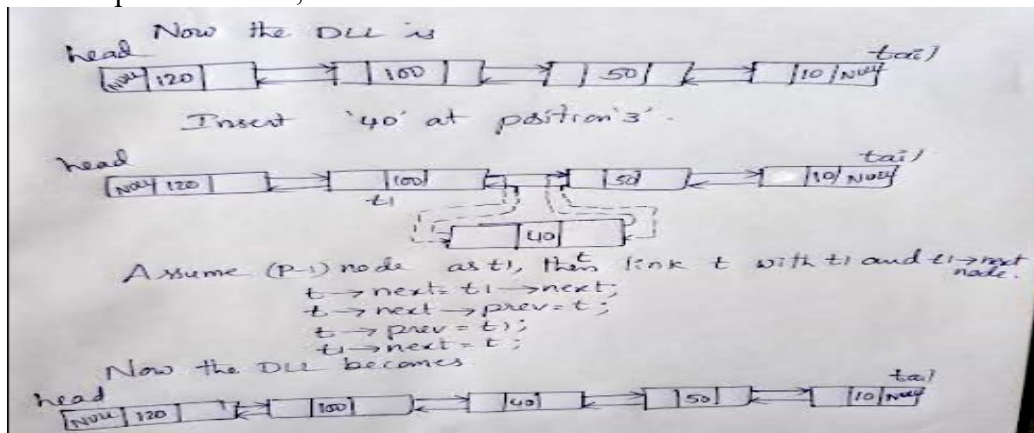 Now the DLL is
head tail
NULL 120 100 50 10 NULL
Insert '40' at position '3'.
head tail
NULL 120 100 50 10 NULL
t1
40
t
Assume (P-1) node as t1, then link t with t1 and t1→next node.
t → next = t1 → next;
t → next → prev = t;
t → prev = t1;
t1 → next = t;
Now the DLL becomes
head tail
NULL 120 100 40 50 10 NULL